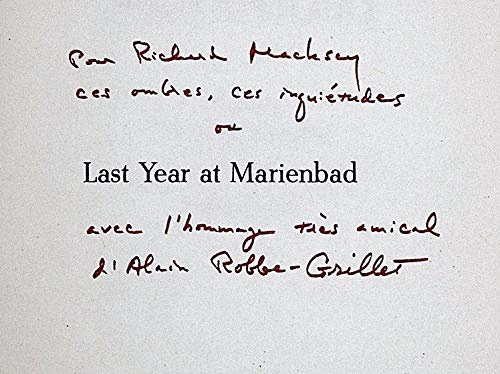 Pour Richard Macksey
ces ombres, ces inquiétudes
ou
Last Year at Marienbad
avec l'hommage très amical
d'Alain Robbe-Grillet